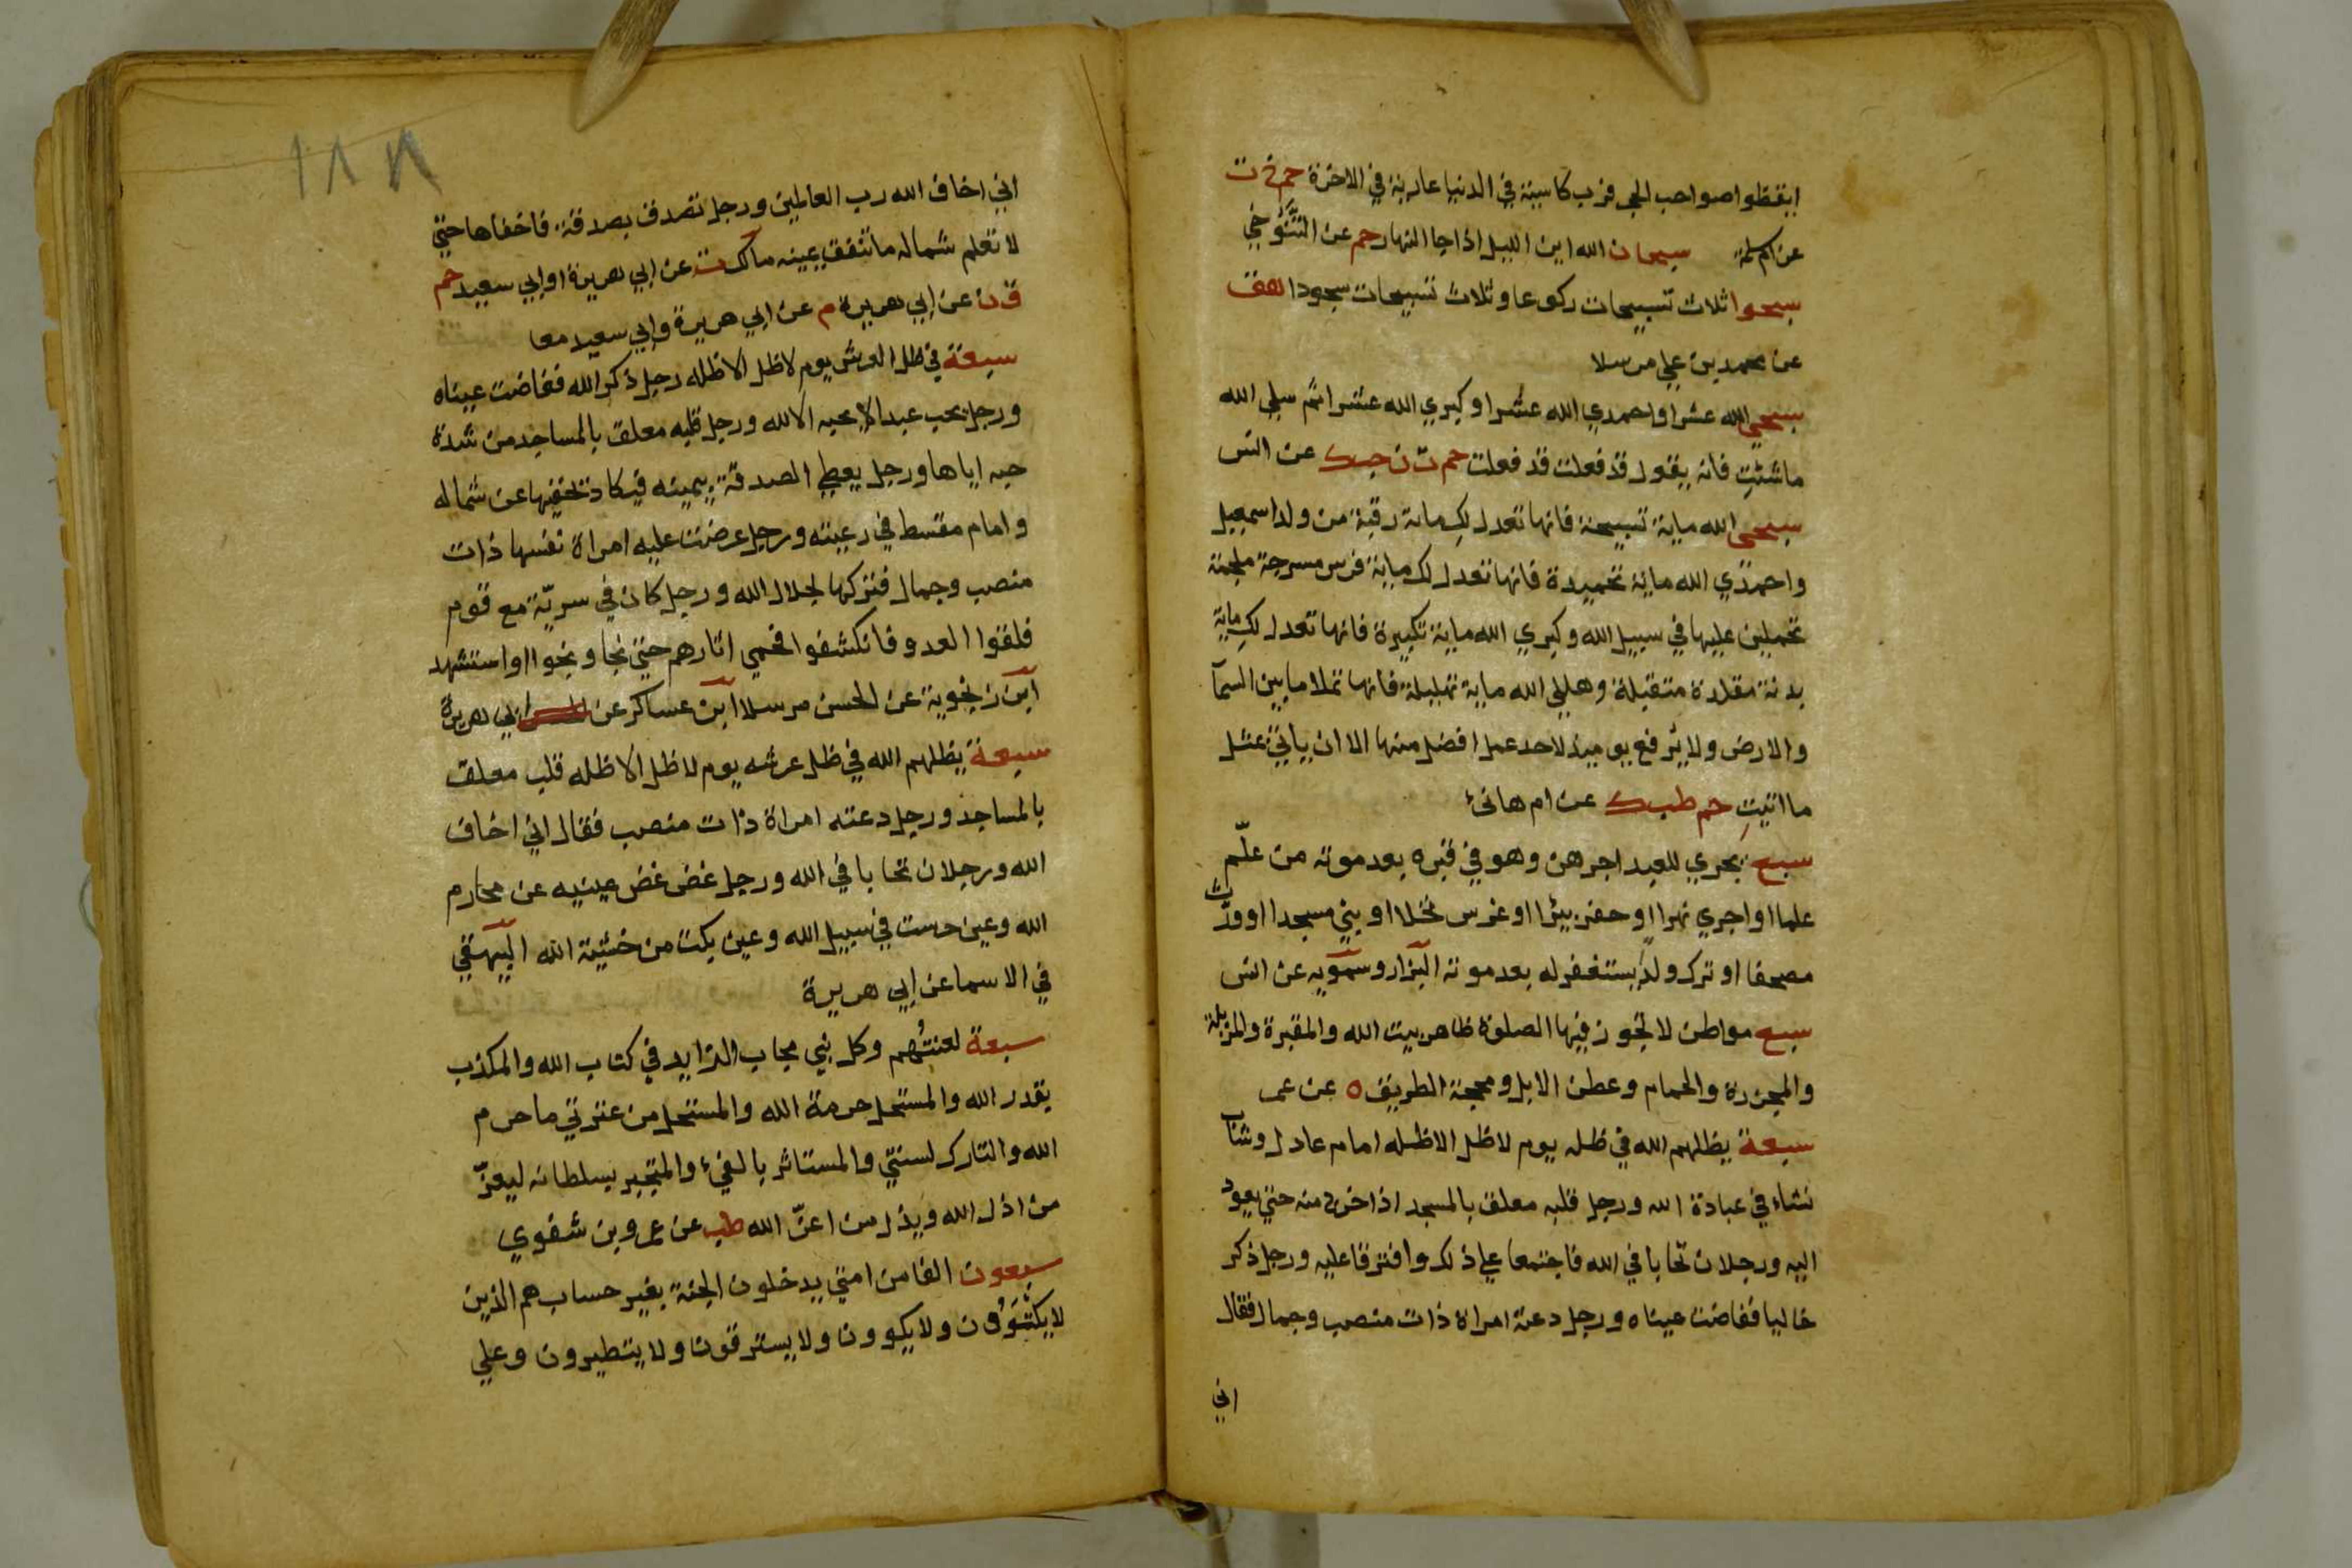 ايقظوا صواحب الحجر فرب كاسية في الدنيا عارية في الاخرة حم خ ت
عن ام سلمة سبحان الله اين الليل اذا جا النهار حم عن التَّنُوخي
سبحوا ثلاث تسبيحات ركوعا وثلاث تسبيحات سجودا هق
عن محمد بن علي مرسلا
سبحي الله عشرا واحمدي الله عشرا وكبري الله عشرا ثم سلي الله
ما شئتِ فانه يقول قد فعلت قد فعلت حم ت ن حب ك عن انس
سبحي الله ماية تسبيحة فانها تعدل لكِ ماية رقبة من ولد اسمعيل
واحمدي الله ماية تحميدة فانها تعدل لك ماية فرس مسرجة ملجمة
تحملين عليها في سبيل الله وكبري الله ماية تكبيرة فانها تعدل لك ماية
بدنة مقلدة متقبلة وهللي الله ماية تهليلة فانها تملا ما بين السمآ
والارض ولا يُرفع يوميذ لاحد عمل افضل منها الا ان ياتي بمثل
ما اتيتِ حم طب ك عن ام هانئ
سبع يجري للعبد اجرهن وهو في قبره بعد موته من علّم
علما او اجري نهرا او حفر بيرا او غرس نخلا او بني مسجدا او ورّث
مصحفا او ترك ولدا يستغفر له بعد موته البزار وسمويه عن انس
سبع مواطن لا تجوز فيها الصلوة ظاهر بيت الله والمقبرة والمزبلة
والمجزرة والحمام وعطن الابل ومحجة الطريق ه عن عمر
سبعة يظلهم الله في ظله يوم لا ظل الا ظله امام عادل وشاب
نشاء في عبادة الله ورجل قلبه معلق بالمسجد اذا خرج منه حتي يعود
اليه ورجلان تحابا في الله فاجتمعا علي ذلك وافترقا عليه ورجل ذكر
خاليا ففاضت عيناه ورجل دعته امراة ذات منصب وجمال فقال
اني
١٨٨
اني اخاف الله رب العالمين ورجل تصدق بصدقة فاخفاها حتي
لا تعلم شماله ما تنفق يمينه مالك ت عن ابي هريرة او ابي سعيد حم
ق ن عن ابي هريرة م عن ابي هريرة وابي سعيد معا
سبعة في ظل العرش يوم لا ظل الا ظله رجل ذكر الله ففاضت عيناه
ورجل يحب عبدا لا يحبه الا لله ورجل قلبه معلق بالمساجد من شدة
حبه اياها ورجل يعطي الصدقة بيمينه فيكاد يخفيها عن شماله
وامام مقسط في رعيته ورجل عرضت عليه امراة نفسها ذات
منصب وجمال فتركها لجلال الله ورجل كان في سريّة مع قوم
فلقوا العدو فانكشفوا فحمي اثارهم حتي نجا ونجوا او استشهد
ابن زنجوية عن الحسن مرسلا ابن عساكر عن ابي هريرة
سبعة يظلهم الله في ظل عرشه يوم لا ظل الا ظله قلب معلق
بالمساجد ورجل دعته امراة ذات منصب فقال اني اخاف
الله ورجلان تحابا في الله ورجل غض غض عينيه عن محارم
الله وعين حرست في سبيل الله وعين بكت من خشية الله البيهقي
في الاسما عن ابي هريرة
سبعة لعنتُهم وكل نبي مجاب الزايد في كتاب الله والمكذب
بقدر الله والمستحل حرمة الله والمستحل من عترتي ما حرم
الله والتارك لسنتي والمستاثر بالفيء والمتجبر بسلطانه ليعزّ
من اذل الله ويذل من اعزّ الله طب عن عمرو بن شغوي
سبعون الفا من امتي يدخلون الجنة بغير حساب هم الذين
لا يكتوون ولا يكوون ولا يسترقون ولا يتطيرون وعلي